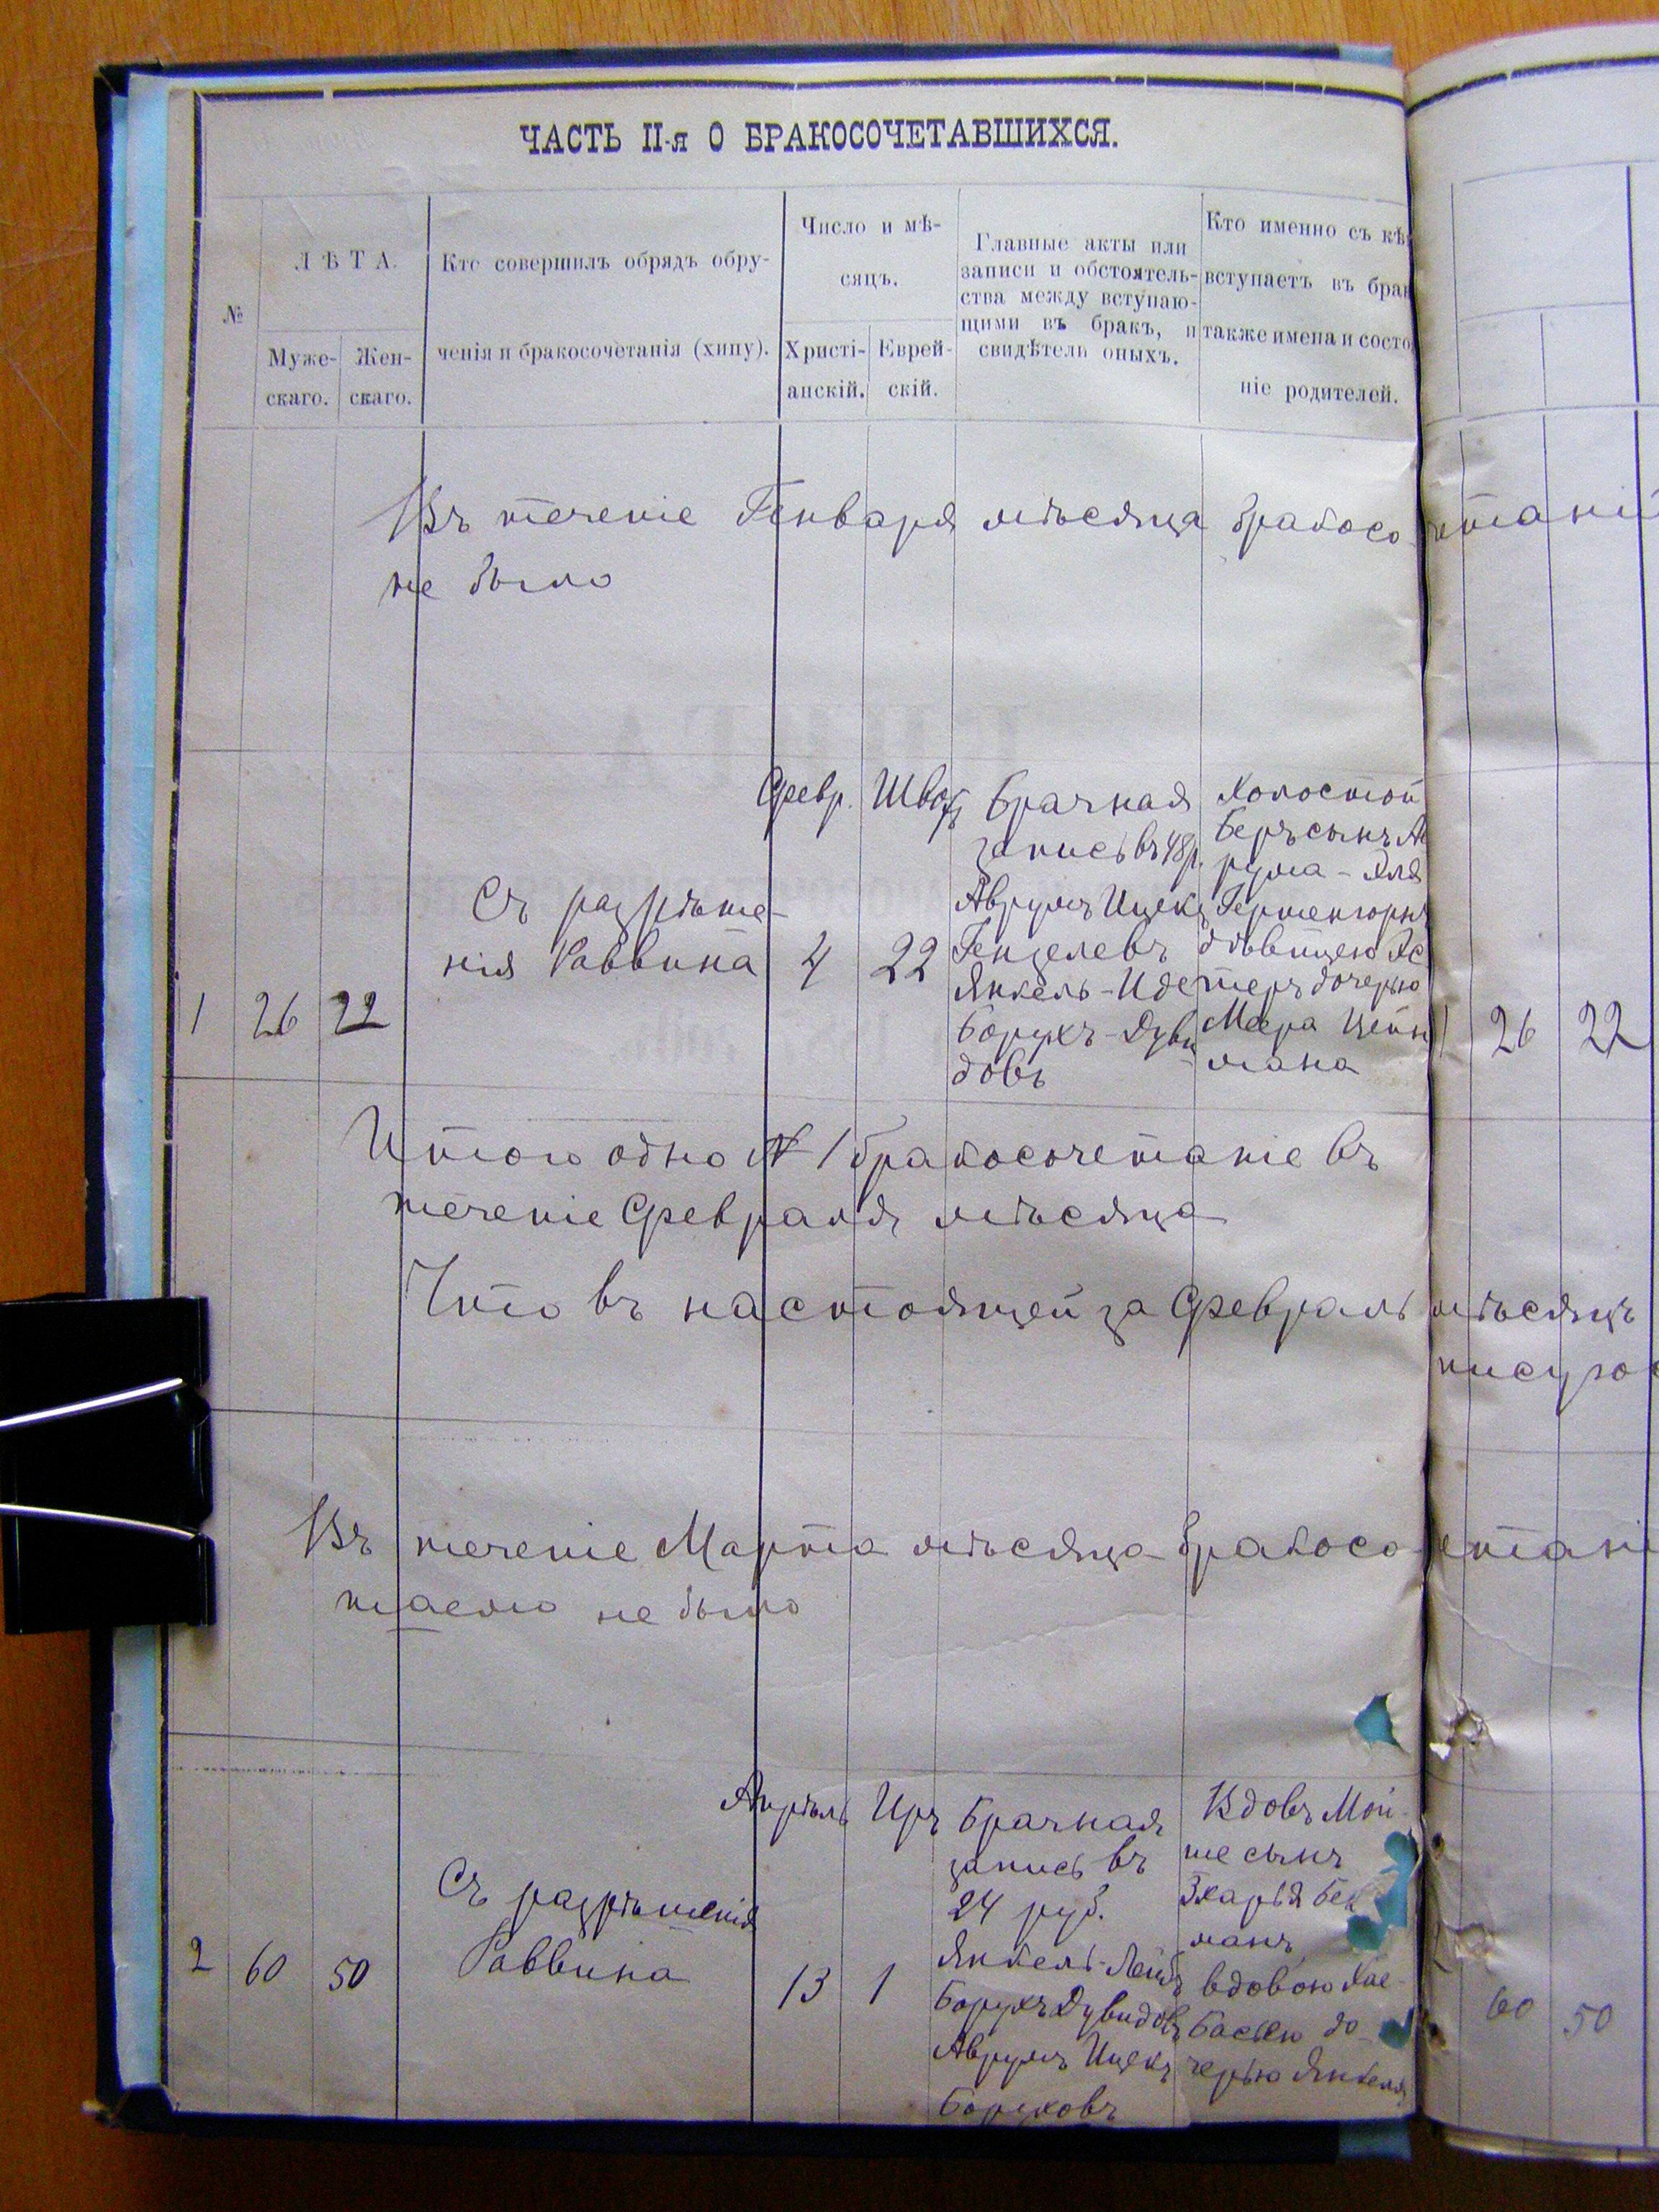 ЧАСТЬ II-я О БРАКОСОЧЕТАВШИХСЯ.
№
ЛѢТА.
Муже-
скаго.
Жен-
скаго.
Кто совершилъ обрядъ обру-
ченія и бракосочетанія (хипу).
Число и мѣ-
сяцъ.
Христі-
анскій.
Еврей-
скій.
Главные акты или
записи и обстоятель-
ства между вступаю-
щими въ бракъ, и
свидѣтели оныхъ.
Кто именно съ кѣ
вступаетъ въ бра
также имена и состо
ніе родителей.
Въ теченіе Генваря мѣсяца бракосо
не было
1 26 22
Съ разрѣше-
нія Раввина
Февр.
4
Шват
22
Брачная
запись въ 48 р.
Аврумъ Ицекъ
Гензелевъ
Янкель-Иде
Борухъ-Дуви
довъ
Холостой
Беръ сынъ Ав
рума-Эля
дѣвицею Эс
теръ дочерью
Меера Цейн
мана
1 26 22
Итого одно № 1 бракосочетаніе въ
теченіе Февраля мѣсяца
Что въ настоящей за Февраль мѣсяцъ
Въ теченіе Марта мѣсяца бракосо
не было
2 60 50
Съ разрѣшенія
Раввина
Апрѣль
13
Иръ
1
Брачная
запись въ
24 руб.
Янкель-Лейбъ
Борухъ Дувидовъ
Аврумъ Ицекъ
Боруховъ
Вдовъ Мой-
ше сынъ
манъ
вдовою Хае-
Басею до-
черью Янкеля
60 50